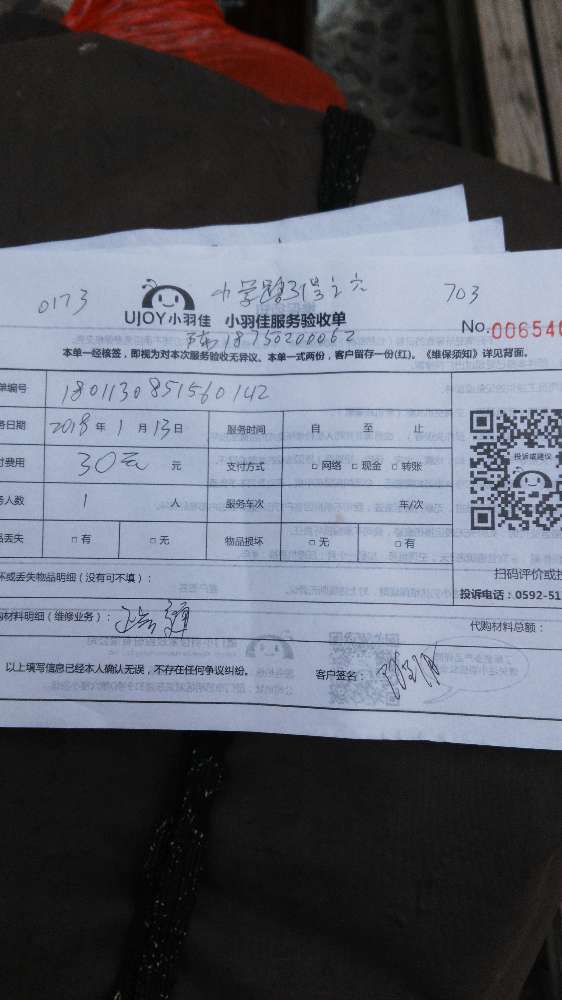 0173 中学路31号之六 703
UJOY小羽佳 小羽佳服务验收单
18750200062 No.006540
本单一经核签，即视为对本次服务验收无异议。本单一式两份，客户留存一份(红)。《维保须知》详见背面。
单编号 1801130851560142
务日期 2018年1月13日 服务时间 自 至 止
付费用 30元 元 支付方式 □网络 □现金 □转账
务人数 1 人 服务车次 车/次
品丢失 □有 □无 物品损坏 □无 □有
投诉或建议
坏或丢失物品明细（没有可不填）：
扫码评价或投
投诉电话：0592-51
购材料明细（维修业务）： 代购材料总额：
以上填写信息已经本人确认无误，不存在任何争议纠纷。 客户签名：